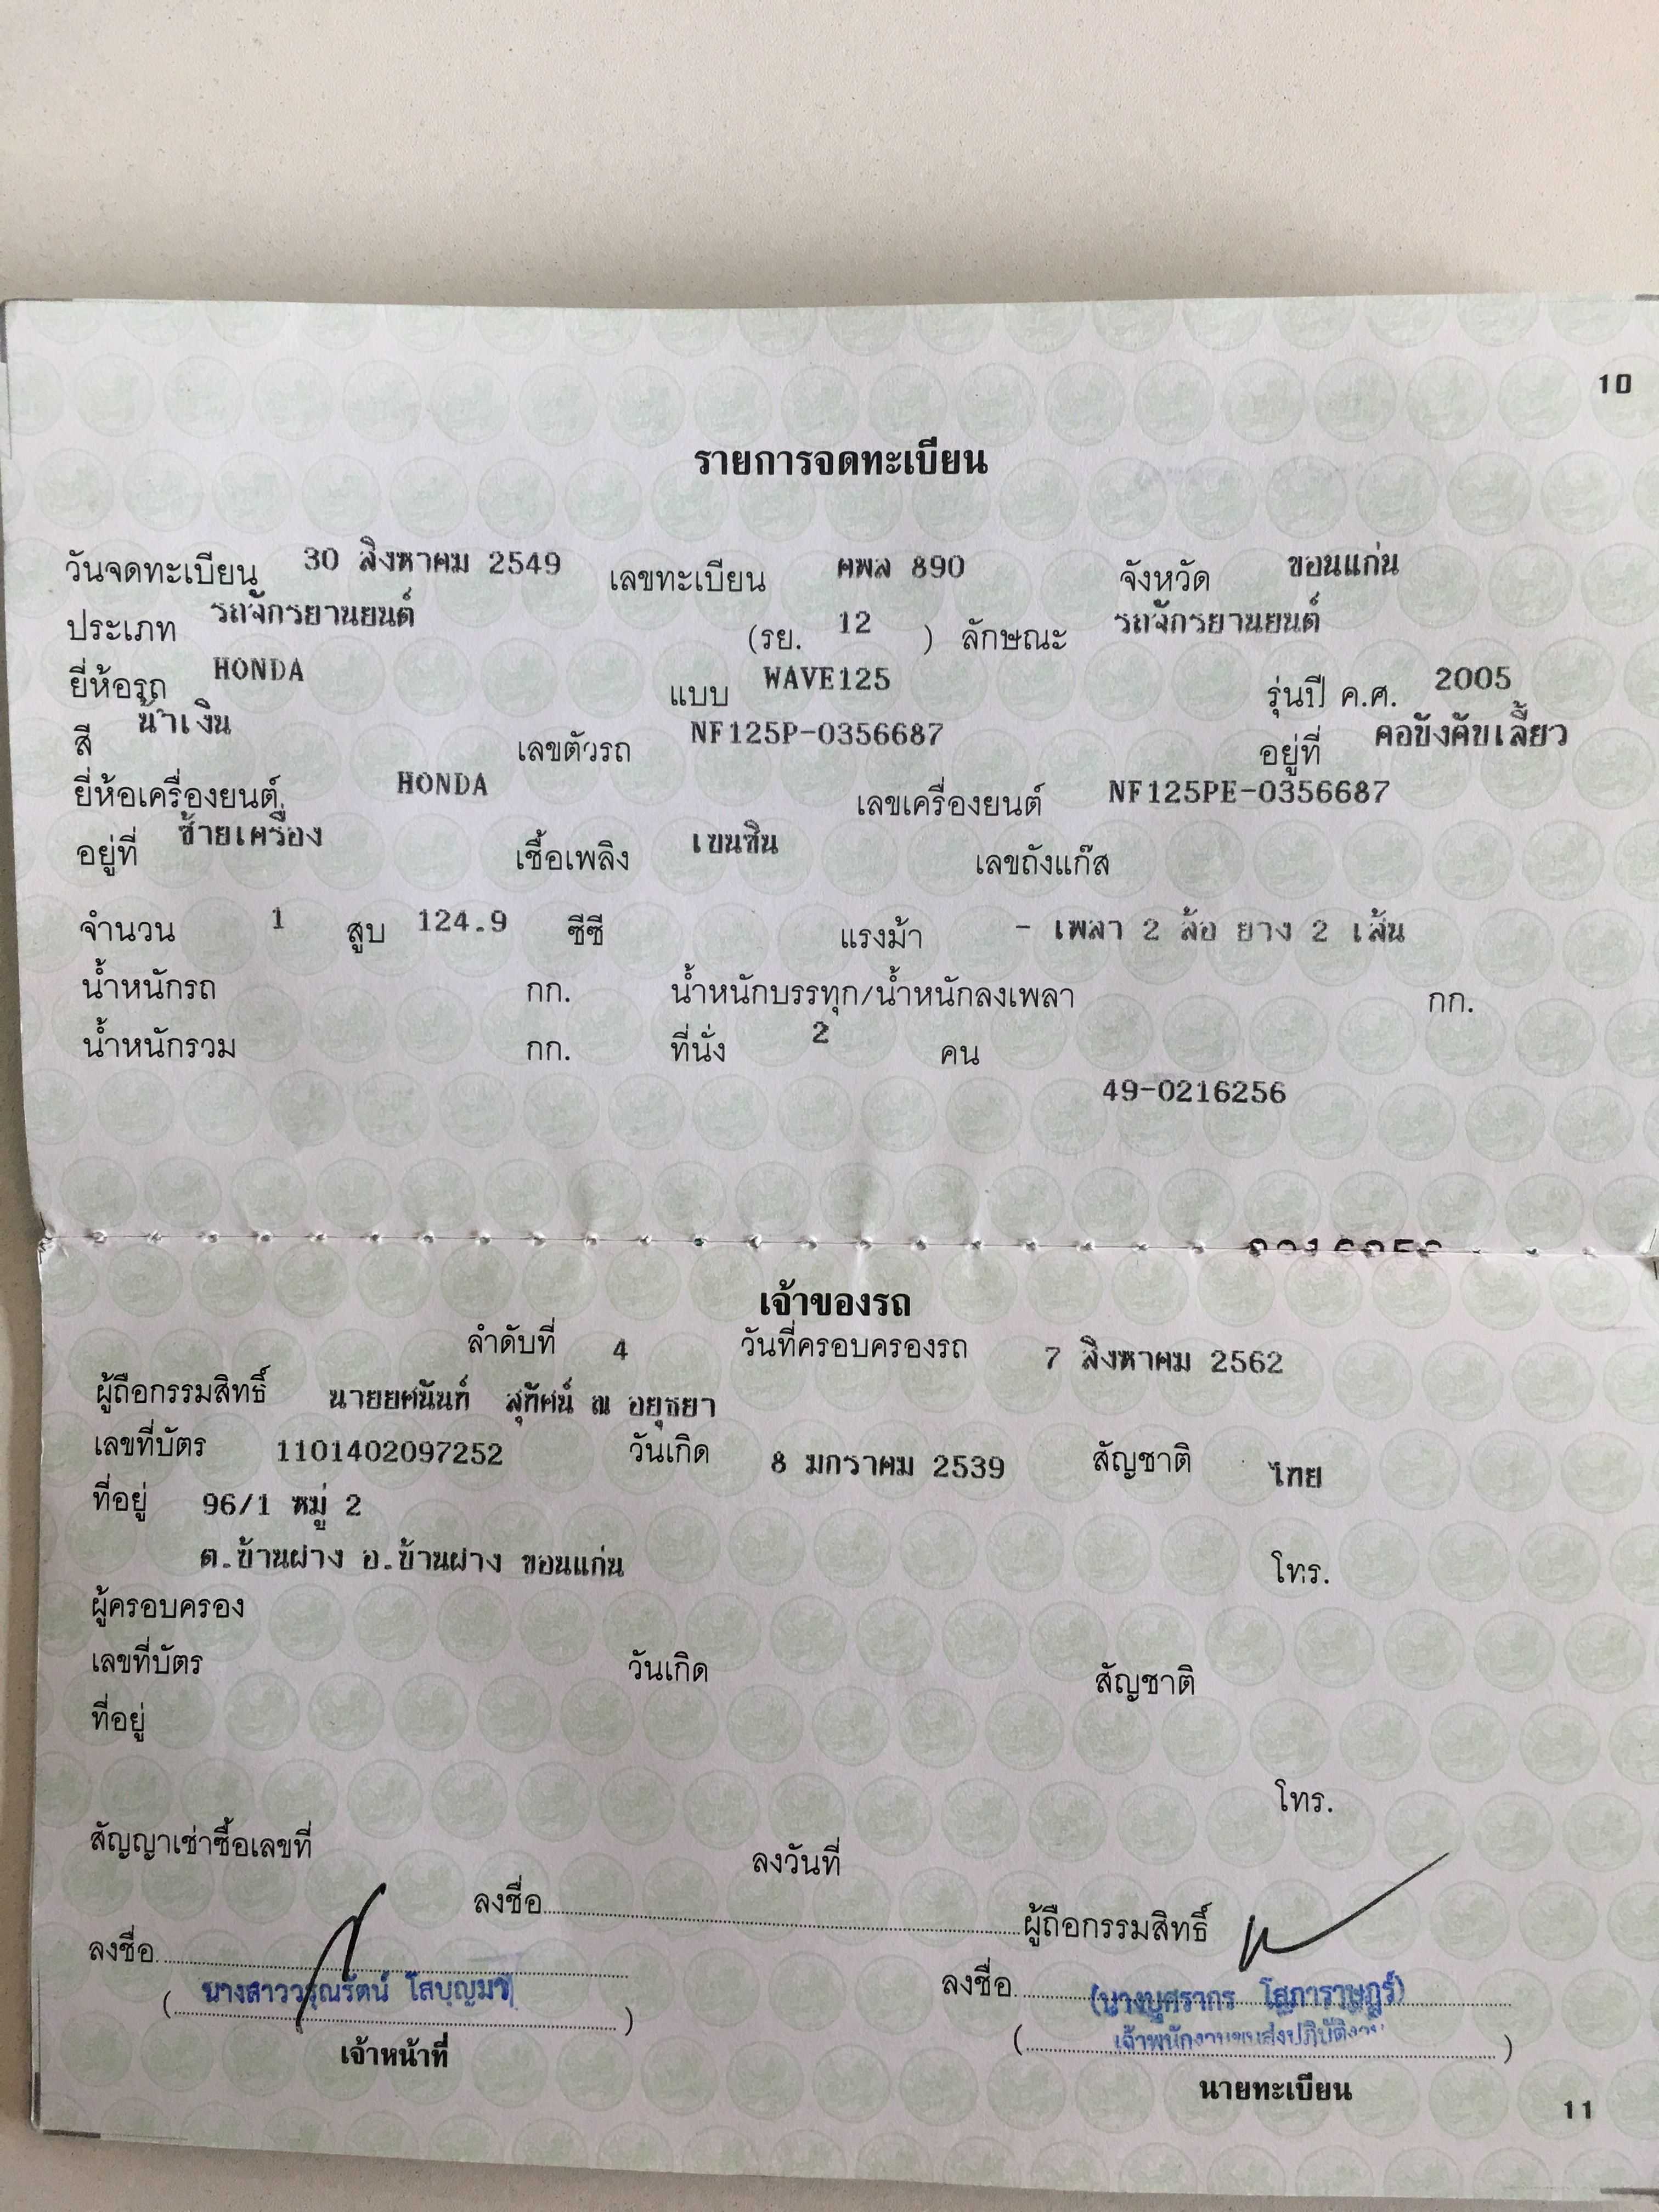 10
รายการจดทะเบียน
วันจดทะเบียน 30 สิงหาคม 2549 เลขทะเบียน คพล 890 จังหวัด ขอนแก่น
ประเภท รถจักรยานยนต์ (รย. 12 ) ลักษณะ รถจักรยานยนต์
ยี่ห้อรถ HONDA แบบ WAVE125 รุ่นปี ค.ศ. 2005
สี น้ำเงิน เลขตัวรถ NF125P-0356687 อยู่ที่ คอบังคับเลี้ยว
ยี่ห้อเครื่องยนต์ HONDA เลขเครื่องยนต์ NF125PE-0356687
อยู่ที่ ซ้ายเครื่อง เชื้อเพลิง เบนซิน เลขถังแก๊ส
จำนวน 1 สูบ 124.9 ซีซี แรงม้า - เพลา 2 ล้อ ยาง 2 เส้น
น้ำหนักรถ กก. น้ำหนักบรรทุก/น้ำหนักลงเพลา กก.
น้ำหนักรวม กก. ที่นั่ง 2 คน
49-0216256
เจ้าของรถ
ลำดับที่ 4 วันที่ครอบครองรถ 7 สิงหาคม 2562
ผู้ถือกรรมสิทธิ์ นายยศนันท์ สุทัศน์ ณ อยุธยา
เลขที่บัตร 1101402097252 วันเกิด 8 มกราคม 2539 สัญชาติ ไทย
ที่อยู่ 96/1 หมู่ 2
ต.บ้านฝาง อ.บ้านฝาง ขอนแก่น โทร.
ผู้ครอบครอง
เลขที่บัตร วันเกิด สัญชาติ
ที่อยู่
โทร.
สัญญาเช่าซื้อเลขที่ ลงวันที่
ลงชื่อ ผู้ถือกรรมสิทธิ์
ลงชื่อ ลงชื่อ
(นางสาววรุณรัตน์ โสบุญมา) (นางบุศรากร โสภาราษฎร์)
เจ้าพนักงานขนส่งปฏิบัติงาน
เจ้าหน้าที่ นายทะเบียน
11